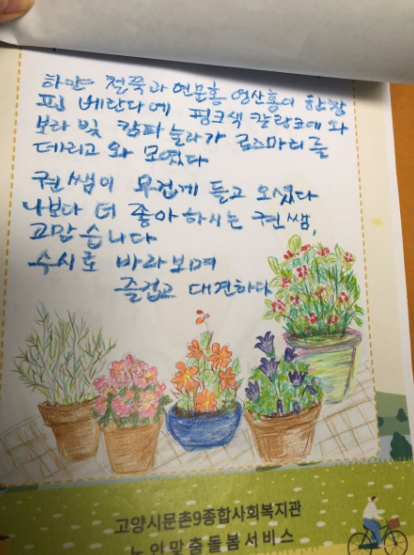 하얀 철쭉과 연분홍 영산홍이 한창
핀 베란다에 핑크색 칼랑코에 와
보라 빛 캄파눌라가 로즈마리를
데리고 와 모였다
권쌤이 무겁게 들고 오셨다
나보다 더 좋아하시는 권쌤,
고맙습니다
수시로 바라보며
즐겁고 대견하다
고양시문촌9종합사회복지관
노인맞춤돌봄서비스